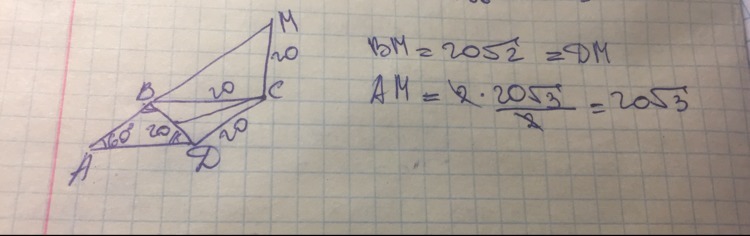 M
20
B 20 C
60° 20 20
A D
BM = 20√2 = DM
AM = 2 · 20√3 / 2 = 20√3